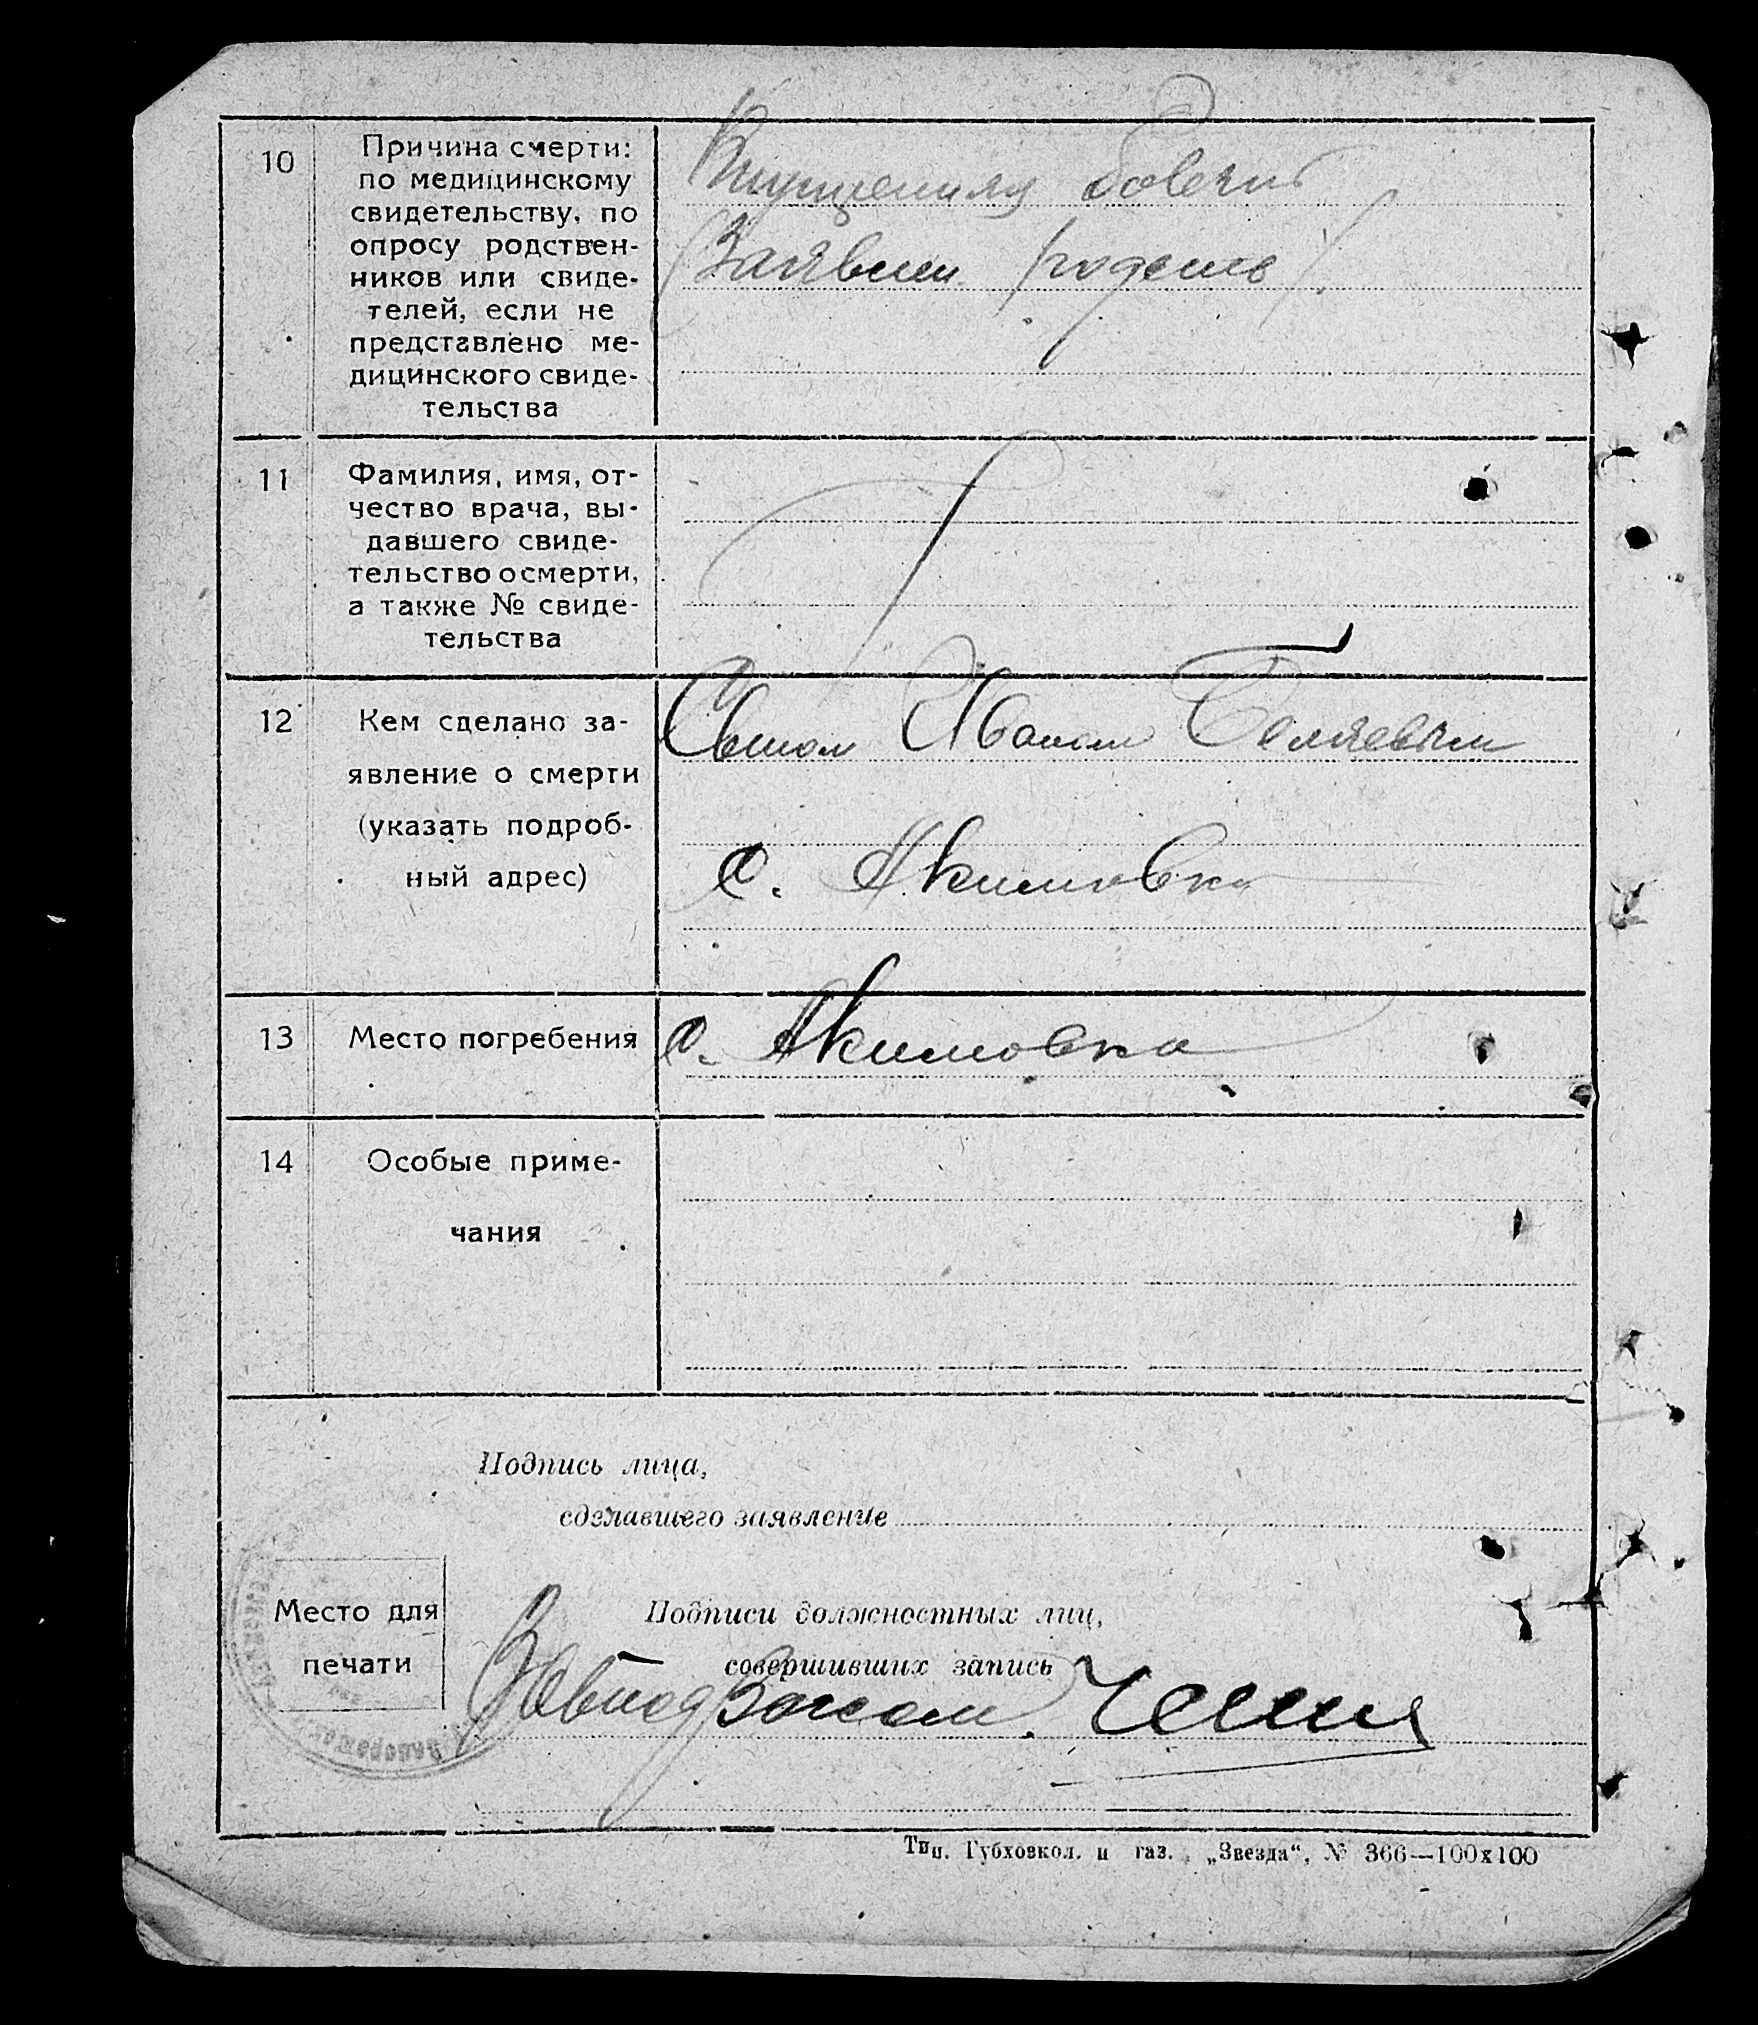 10
Причина смерти:
по медицинскому
свидетельству, по
опросу родствен-
ников или свиде-
телей, если не
представлено ме-
дицинского свиде-
тельства
11
Фамилия, имя, от-
чество врача, вы-
давшего свиде-
тельство о смерти,
а также № свиде-
тельства
12
Кем сделано за-
явление о смерти
(указать подроб-
ный адрес)
Сыном Иваном Беляевым
с. Акимовка
13
Место погребения
с. Акимовка
14
Особые приме-
чания
Подпись лица,
сделавшего заявление
Место для
печати
Подписи должностных лиц,
совершивших запись
Тип. Губховкол. и газ. „Звезда“, № 366—100x100